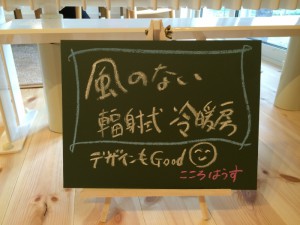 風のない
輻射式 冷暖房
デザインもGood
こころはうす